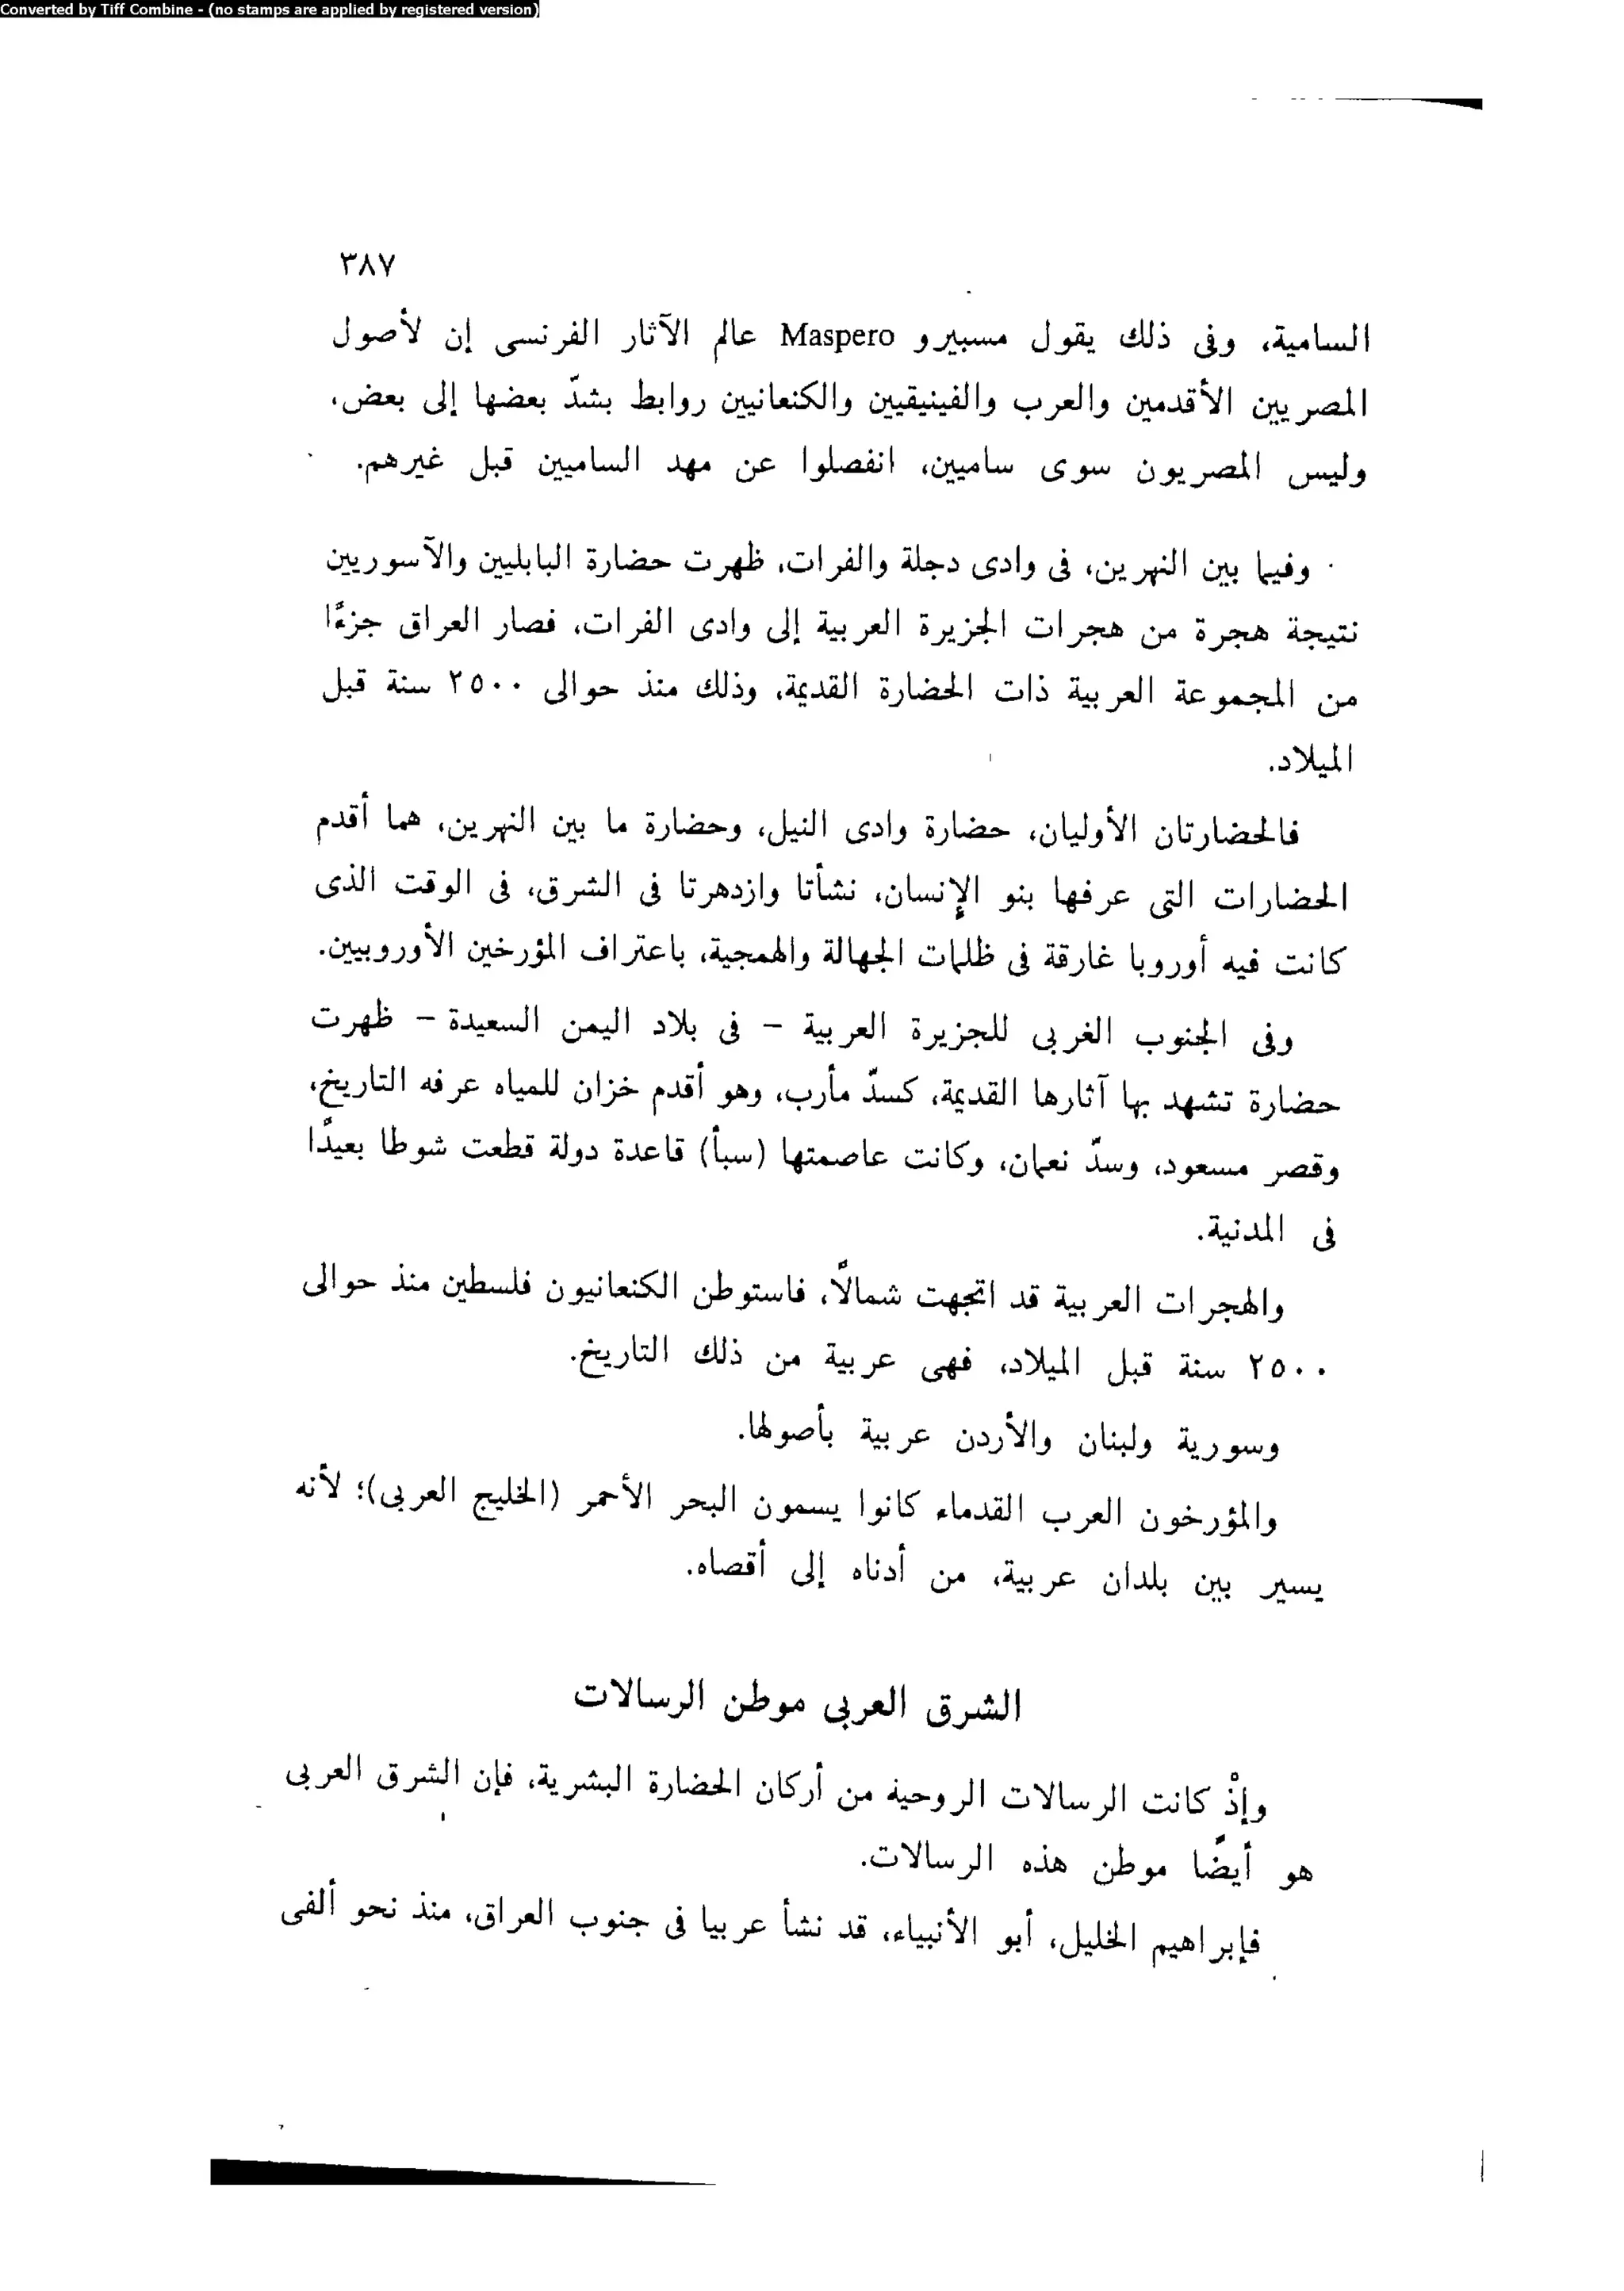 Converted by Tiff Combine - (no stamps are applied by registered version)
٣٨٧
السامية، وفى ذلك يقول مسبيرو Maspero عالم الآثار الفرنسى إن لأصول
المصريين الأقدمين والعرب والفينيقيين والكنعانيين روابط بشدّ بعضها إلى بعض،
وليس المصريون سوى ساميين، انفصلوا عن مهد الساميين قبل غيرهم.
وفيما بين النهرين، فى وادى دجلة والفرات، ظهرت حضارة البابليين والآسوريين
نتيجة هجرة من هجرات الجزيرة العربية إلى وادى الفرات، فصار العراق جزءًا
من المجموعة العربية ذات الحضارة القديمة، وذلك منذ حوالى ٢٥٠٠ سنة قبل
الميلاد.
فالحضارتان الأوليان، حضارة وادى النيل، وحضارة ما بين النهرين، هما أقدم
الحضارات التى عرفها بنو الإنسان، نشأتا وازدهرتا فى الشرق، فى الوقت الذى
كانت فيه أوروبا غارقة فى ظلمات الجهالة والهمجية، باعتراف المؤرخين الأوروبيين.
وفى الجنوب الغربى للجزيرة العربية - فى بلاد اليمن السعيدة - ظهرت
حضارة تشهد بها آثارها القديمة، كسدّ مأرب، وهو أقدم خزان للمياه عرفه التاريخ،
وقصر مسعود، وسدّ نعمان، وكانت عاصمتها (سبأ) قاعدة دولة قطعت شوطا بعيدًا
فى المدنية.
والهجرات العربية قد اتجهت شمالاً، فاستوطن الكنعانيون فلسطين منذ حوالى
٢٥٠٠ سنة قبل الميلاد، فهى عربية من ذلك التاريخ.
وسورية ولبنان والأردن عربية بأصولها.
والمؤرخون العرب القدماء كانوا يسمون البحر الأحمر (الخليج العربى)؛ لأنه
يسير بين بلدان عربية، من أدناه إلى أقصاه.
الشرق العربى موطن الرسالات
وإذْ كانت الرسالات الروحية من أركان الحضارة البشرية، فإن الشرق العربى
هو أيضًا موطن هذه الرسالات.
فإبراهيم الخليل، أبو الأنبياء، قد نشأ عربيا فى جنوب العراق، منذ نحو ألفى